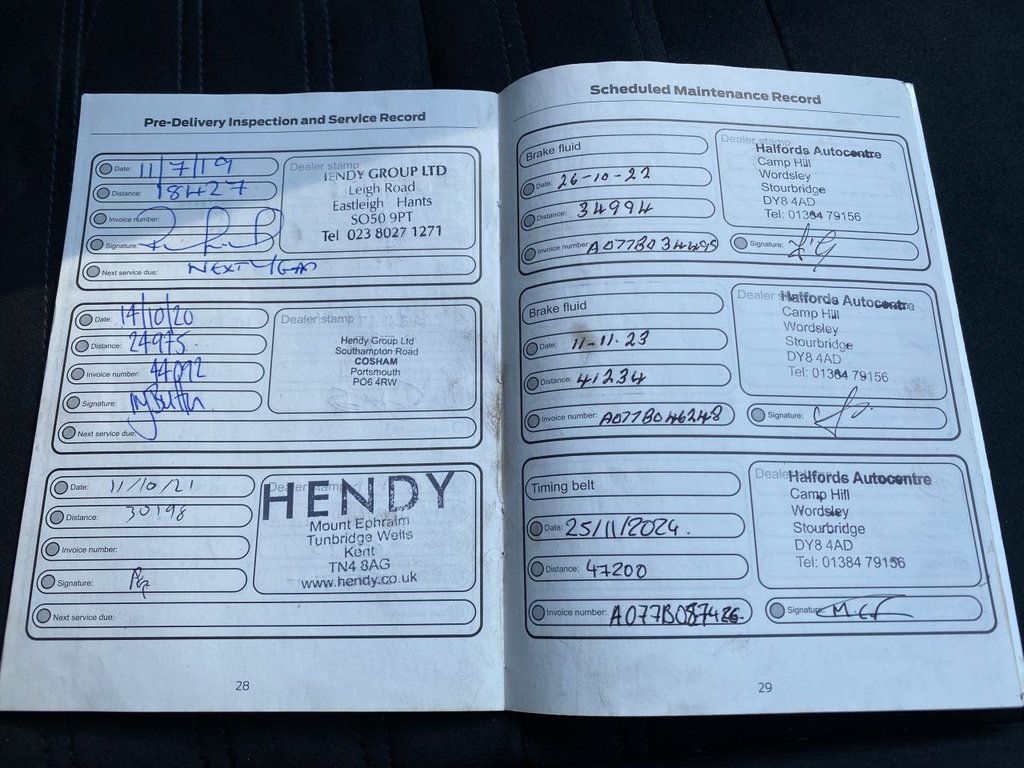 Pre-Delivery Inspection and Service Record
Date: 11/7/19
Distance: 18427
Invoice number:
Signature:
Next service due: NEXT YEAR
Dealer stamp
HENDY GROUP LTD
Leigh Road
Eastleigh Hants
SO50 9PT
Tel 023 8027 1271
Date: 14/10/20
Distance: 24975
Invoice number: 44092
Signature:
Next service due:
Dealer stamp
Hendy Group Ltd
Southampton Road
COSHAM
Portsmouth
PO6 4RW
Date: 11/10/21
Distance: 30198
Invoice number:
Signature:
Next service due:
Dealer stamp
HENDY
Mount Ephraim
Tunbridge Wells
Kent
TN4 8AG
www.hendy.co.uk
28
Scheduled Maintenance Record
Brake fluid
Date: 26-10-22
Distance: 34994
Invoice number: A077B034495
Dealer stamp
Halfords Autocentre
Camp Hill
Wordsley
Stourbridge
DY8 4AD
Tel: 01384 79156
Signature:
Brake fluid
Date: 11-11-23
Distance: 41234
Invoice number: A077B046248
Dealer
Halfords Autocentre
Camp Hill
Wordsley
Stourbridge
DY8 4AD
Tel: 01384 79156
Signature:
Timing belt
Date: 25/11/2024.
Distance: 47200
Invoice number: A077B087426.
Dealer
Halfords Autocentre
Camp Hill
Wordsley
Stourbridge
DY8 4AD
Tel: 01384 79156
Signature:
29